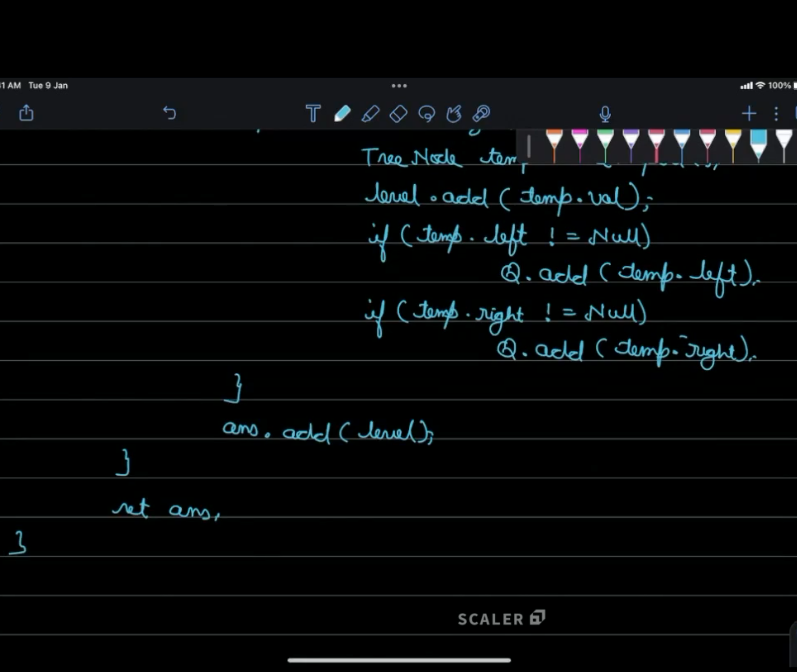 1 AM Tue 9 Jan
100%
T
Tree Node tem
level.add(temp.val);
if (temp.left != Null)
Q.add(temp.left);
if (temp.right != Null)
Q.add(temp.right);
}
ans.add(level);
}
ret ans,
}
SCALER